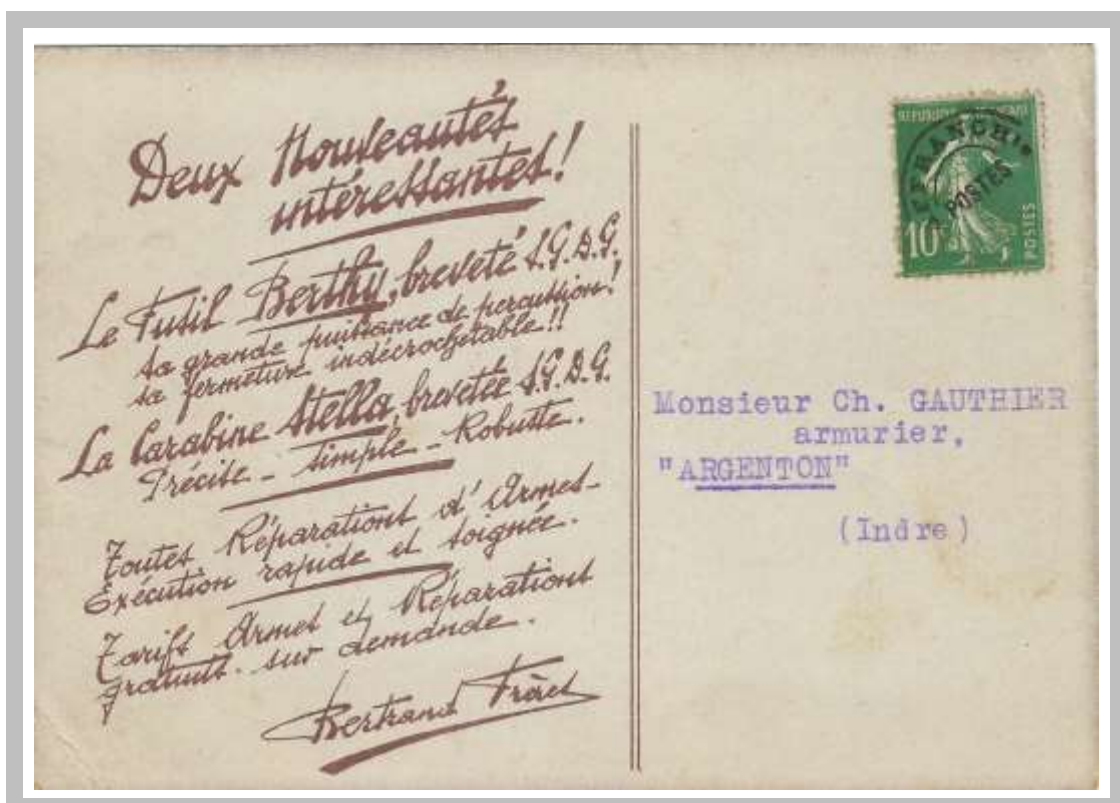 Deux Nouveautés
intéressantes!
Le Fusil Berthy, breveté S.G.D.G.
sa grande puissance de percussion!
sa fermeture indécrochetable!!
La Carabine Stella, brevetée S.G.D.G.
Précise - simple - Robuste.
Toutes Réparations d'Armes-
Exécution rapide et soignée.
Tarifs Armes et Réparations
gratuits sur demande.
Bertrand Frères
REPUBLIQUE FRANCAISE
AFFRANCHTS
POSTES
10c
POSTES
Monsieur Ch. GAUTHIER
armurier,
"ARGENTON"
(Indre)